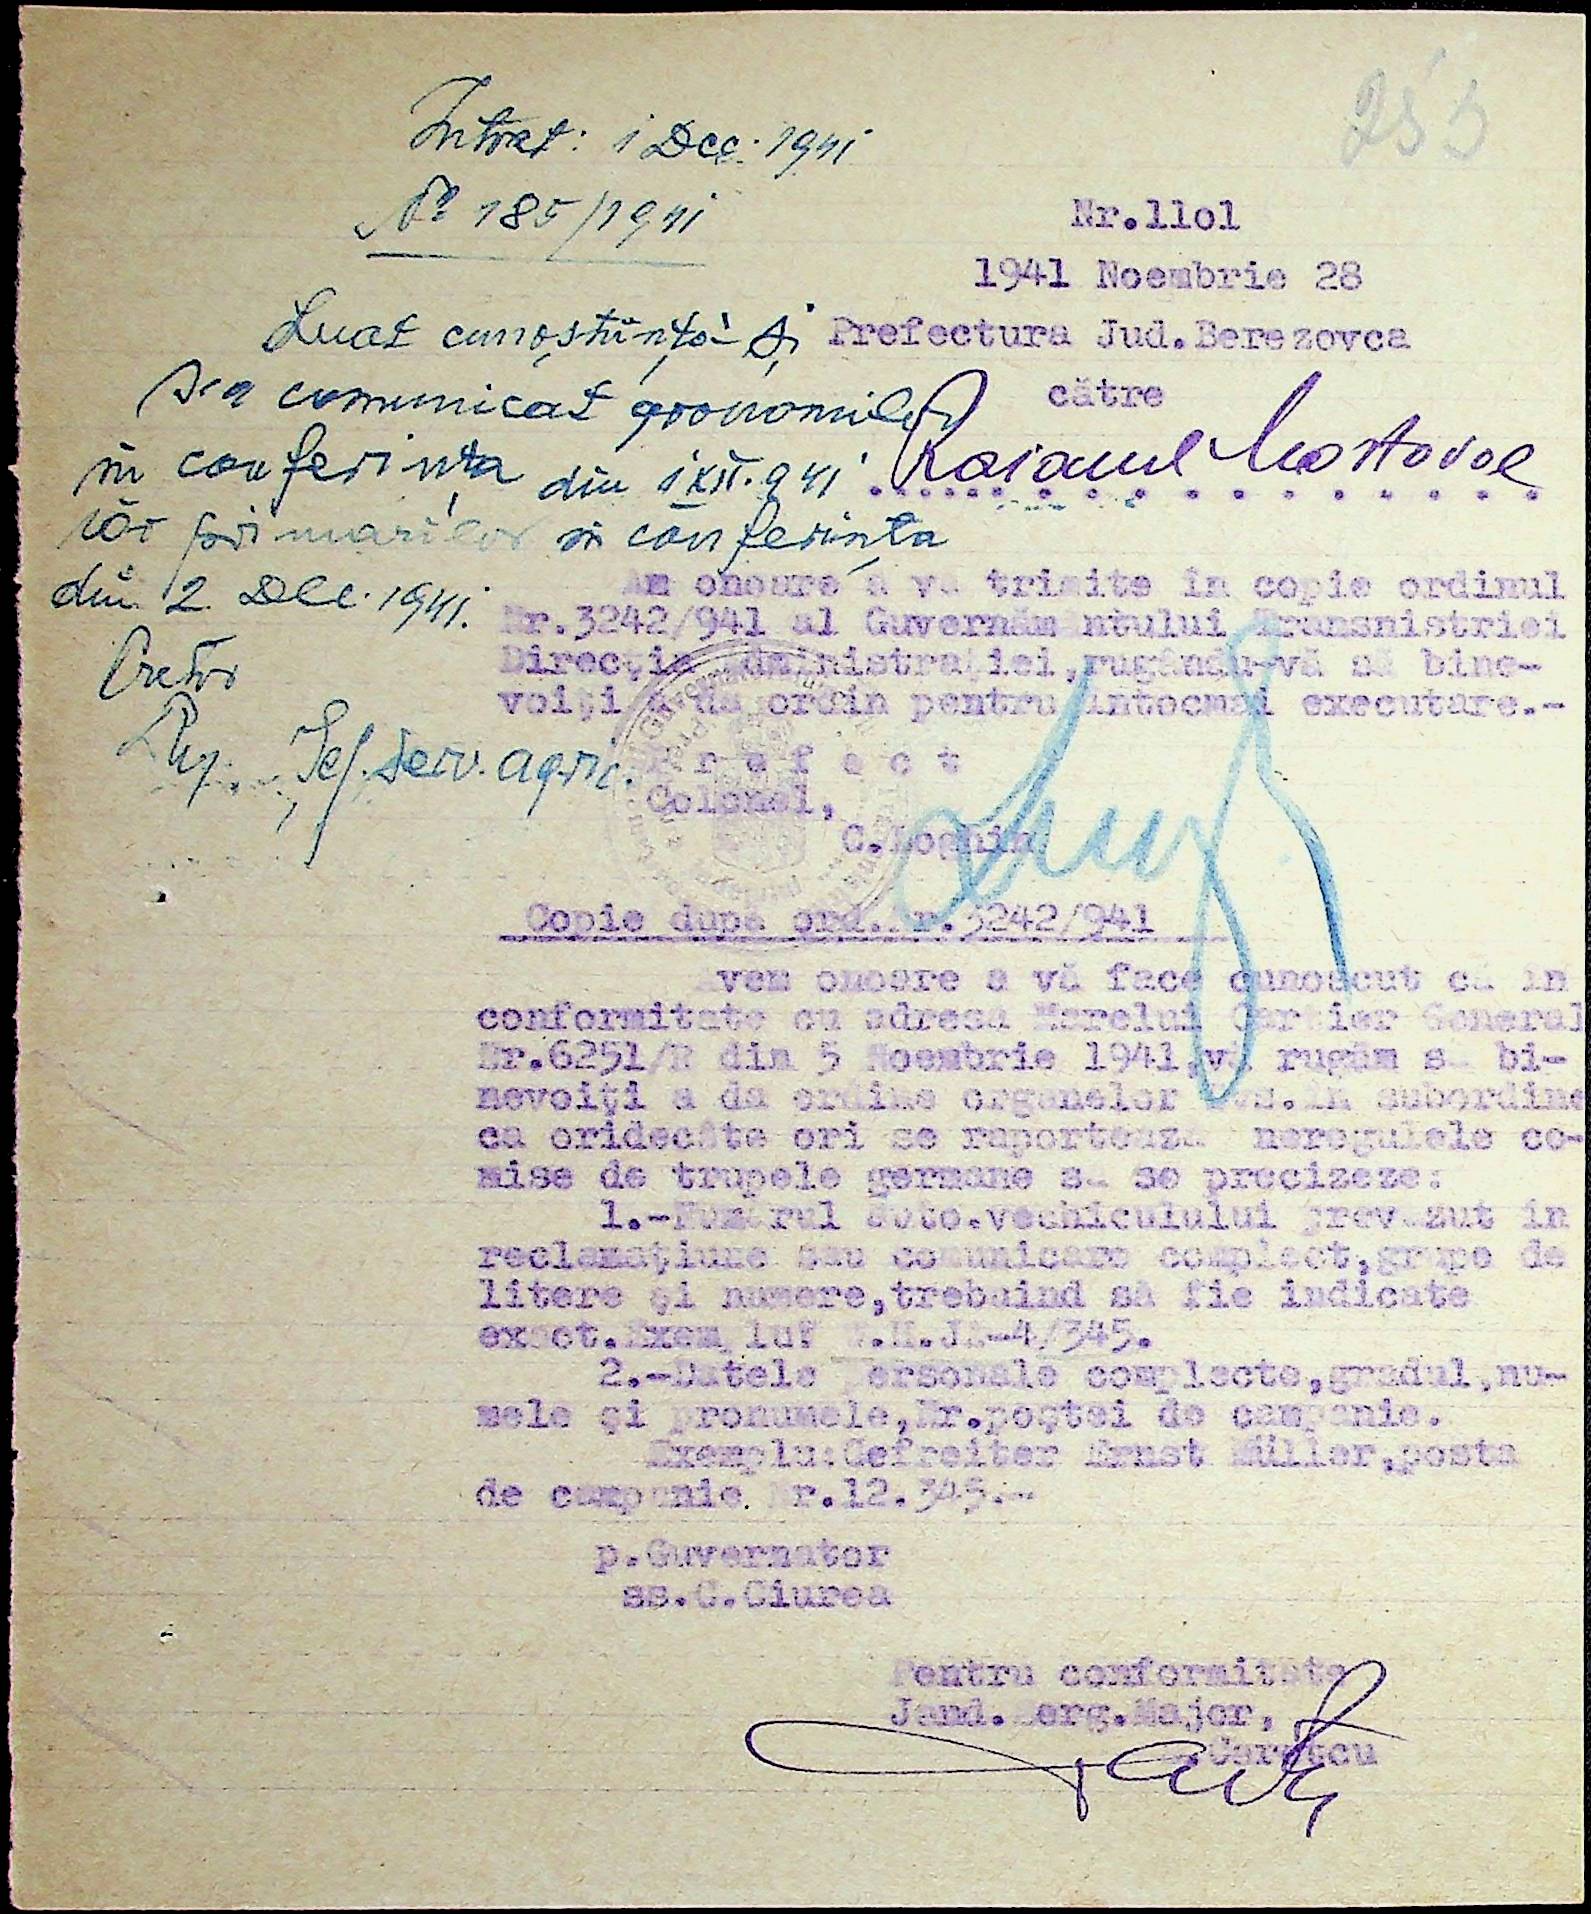 255
Intrat: 1 Dec. 1941
Nº 185/1941
Nr.1lo1
1941 Noembrie 28
Prefectura Jud.Berezovca
către
Raionul Mostovoe
Luat cunoștiință și
s-a comunicat agronomilor
in conferința din 1 XII.941
iar primarilor in conferința
din 2. Dec. 1941.
Pretor
Șef. serv. agric.
Am onoare a vă trimite în copie ordinul
Nr.3242/941 al Guvernământului Transnistriei
Direcția Administrației,rugându-vă să bine-
voiți a da ordin pentru întocmai executare.-
P r e f e c t
Colonel,
C.Loghin
Copie după ord.Nr.3242/941
Avem onoare a vă face cunoscut că în
conformitate cu adresa Marelui Cartier General
Nr.6251/R din 5 Noembrie 1941,vă rugăm să bi-
nevoiți a da ordine organelor Dvs.în subordine
ca oridecâte ori se raportează neregulele co-
mise de trupele germane să se precizeze:
1.-Numărul auto.vechiculului prevăzut în
reclamațiune sau comunicare complect,grupe de
litere și numere,trebuind să fie indicate
exact. .H.JA-4/345.
2.-Datele personale complecte,gradul,nu-
mele și pronumele,Nr.poștei de campanie.
Exemplu:Gefreiter Ernst Müller,posta
de campanie Nr.12.345.-
p.Guvernator
ss.C.Ciurea
Pentru conformitate
Jand.Serg.Major,